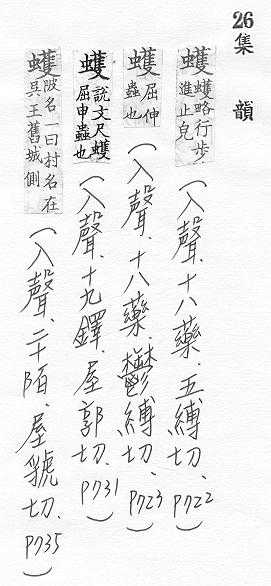 26集韻
蠖蠖略行步進止皃(入聲.十八藥.五縛切.P722)
蠖屈伸蟲也(入聲.十八藥.鬱縛切.P723)
蠖說文尺蠖屈申蟲也(入聲.十九鐸.屋郭切.P731)
蠖陂名一曰村名在吳王舊城側(入聲.二十陌.屋虢切.P735)